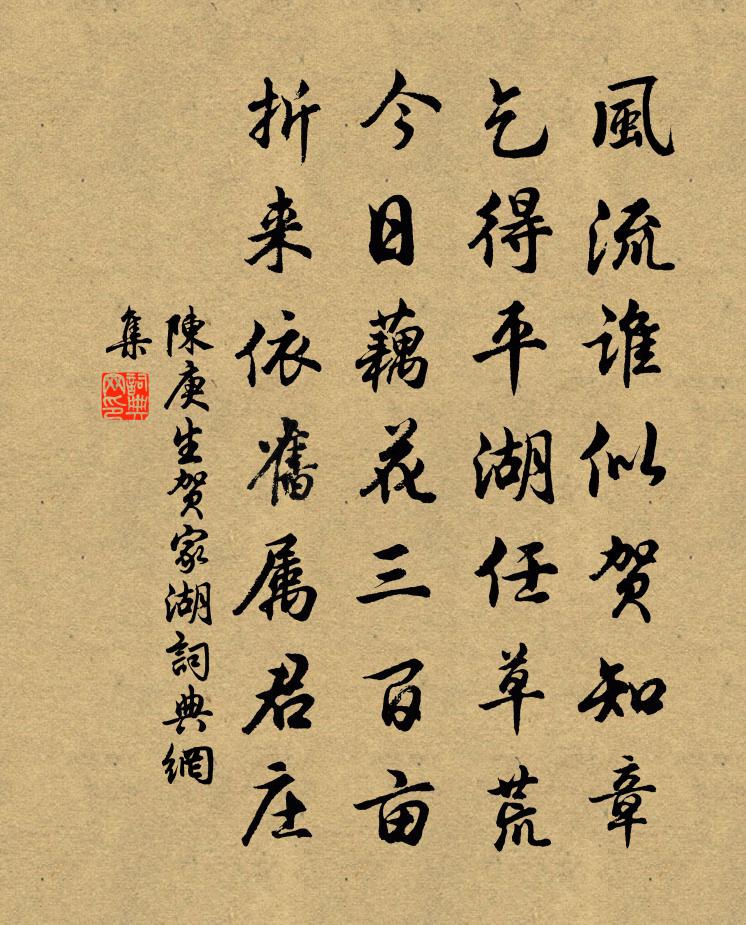 風流誰似賀知章
乞得平湖任草荒
今日藕花三百亩
折来依舊属君庄
陳庚生賀家湖詞典網
集
詞典
网印